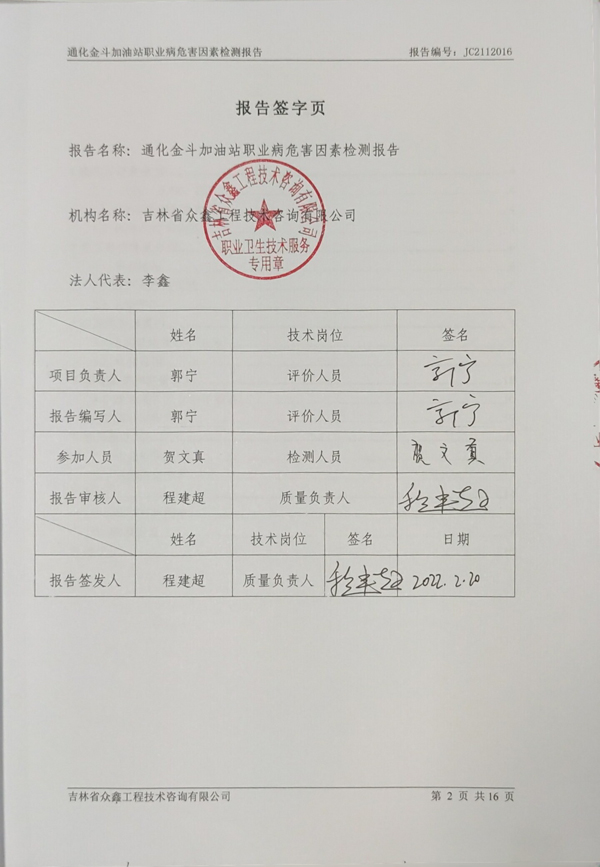 通化金斗加油站职业病危害因素检测报告 报告编号：JC2112016
报告签字页
报告名称：通化金斗加油站职业病危害因素检测报告
机构名称：吉林省众鑫工程技术咨询有限公司
吉林省众鑫工程技术咨询有限公司
职业卫生技术服务
专用章
法人代表：李鑫
姓名 技术岗位 签名
项目负责人 郭宁 评价人员 郭宁
报告编写人 郭宁 评价人员 郭宁
参加人员 贺文真 检测人员 贺文真
报告审核人 程建超 质量负责人 程建超
姓名 技术岗位 签名 日期
报告签发人 程建超 质量负责人 程建超 2022.2.20
吉林省众鑫工程技术咨询有限公司 第 2 页 共16 页